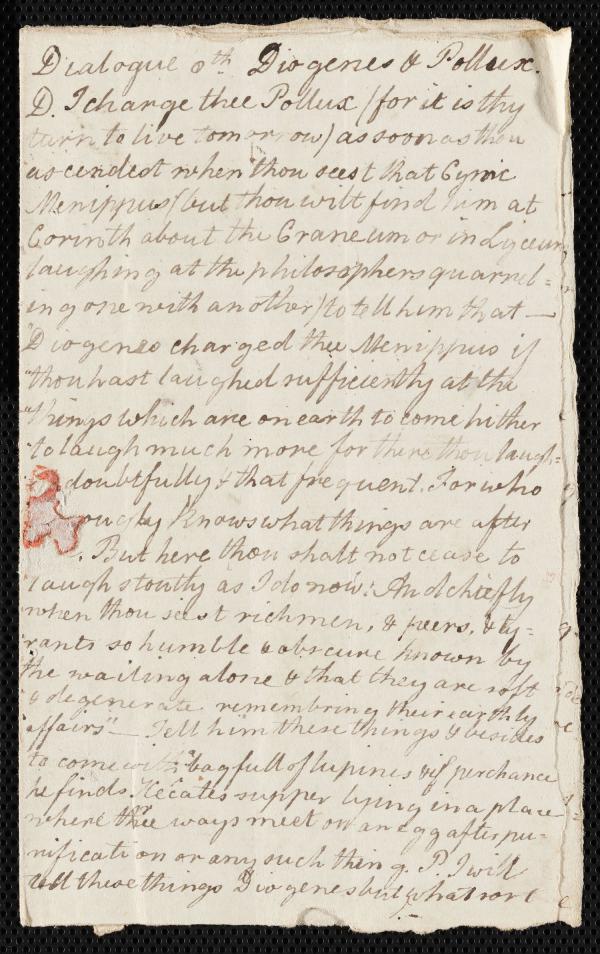 Dialogue 0th Diogenes & Pollux.
D. I charge thee Pollux (for it is thy
turn to live tomorrow) as soon as thou
ascendest when thou seest that Cynic
Menippus (but thou wilt find him at
Corinth about the Craneum or in Lyceum
laughing at the philosophers quarrel=
ing one with another) to tell him that —
"Diogenes charged thee Menippus if
"thou hast laughed sufficiently at the
"things which are on earth to come hither
"to laugh much more for there thou laugh=
doubtfully & that frequent. For who
oughly knows what things are after
. But here thou shalt not cease to
laugh stoutly as I do now: And chiefly
when thou seest rich men, & peers, & ty=
rants so humble & obscure known by
the wailing alone & that they are soft
& degenerate remembring their earthly
affairs" — Tell him these things & besides
to come with bag full of lupines & if perchance
he finds Hecates supper lying in a place
where three ways meet or an egg after pu=
rification or any such thing. P. I will
tell these things Diogenes but what sort